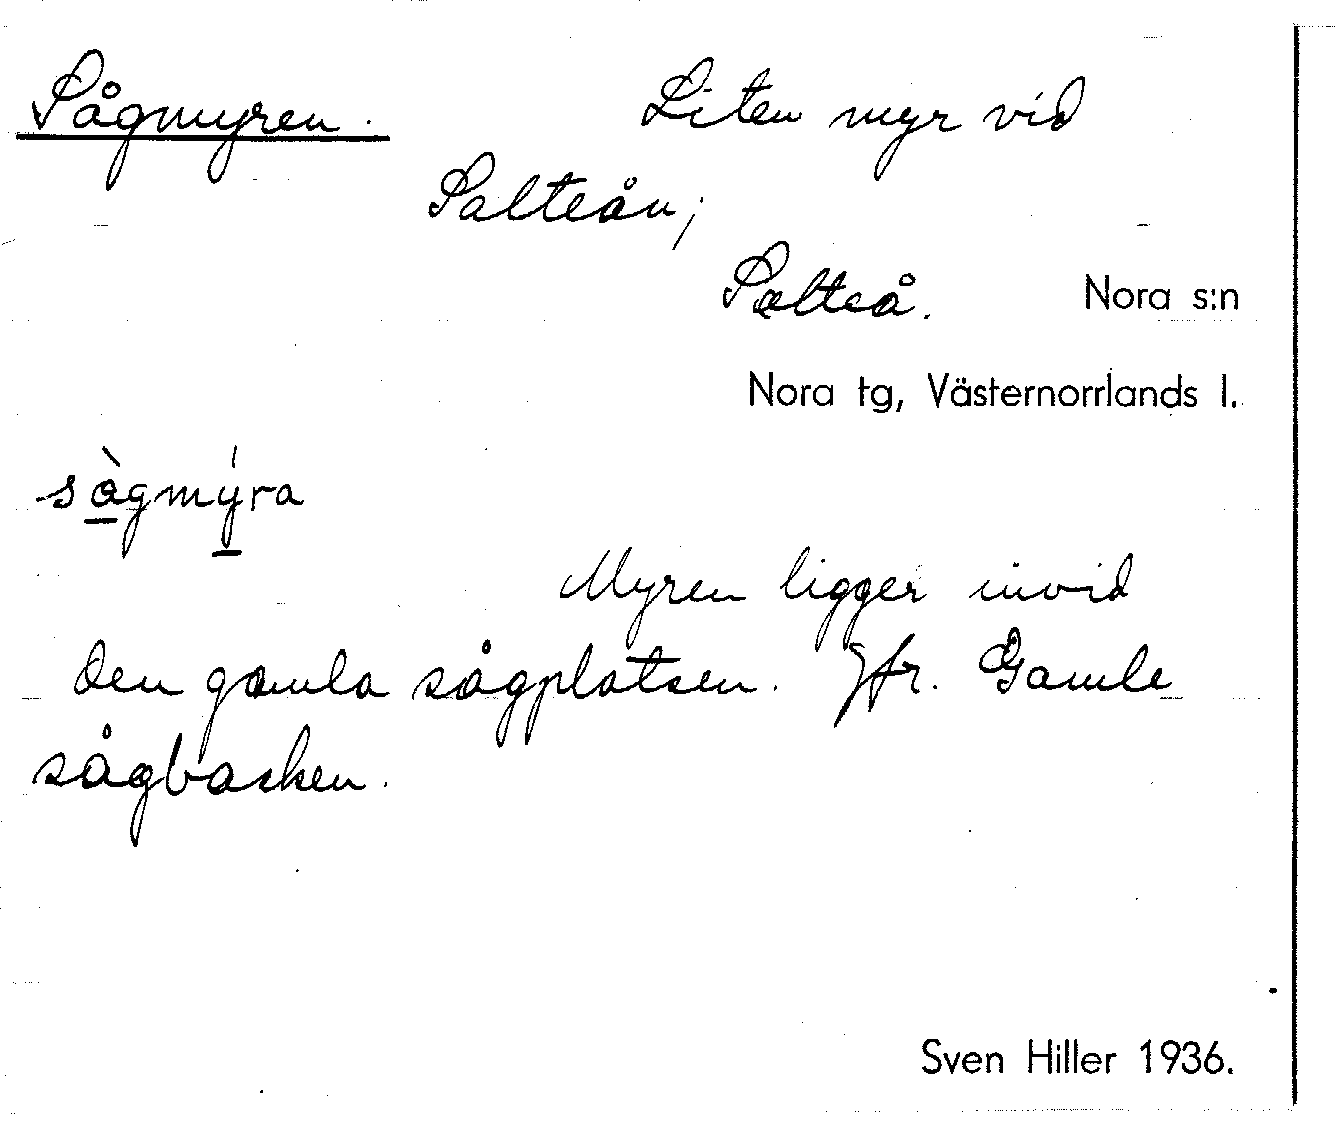 Sågmyren. Liten myr vid
Salteån;
Salteå. Nora s:n
Nora tg, Västernorrlands l.
sàgmýra
Myren ligger invid
den gamla sågplatsen. Jfr. Gamle
sågbacken.
Sven Hiller 1936.